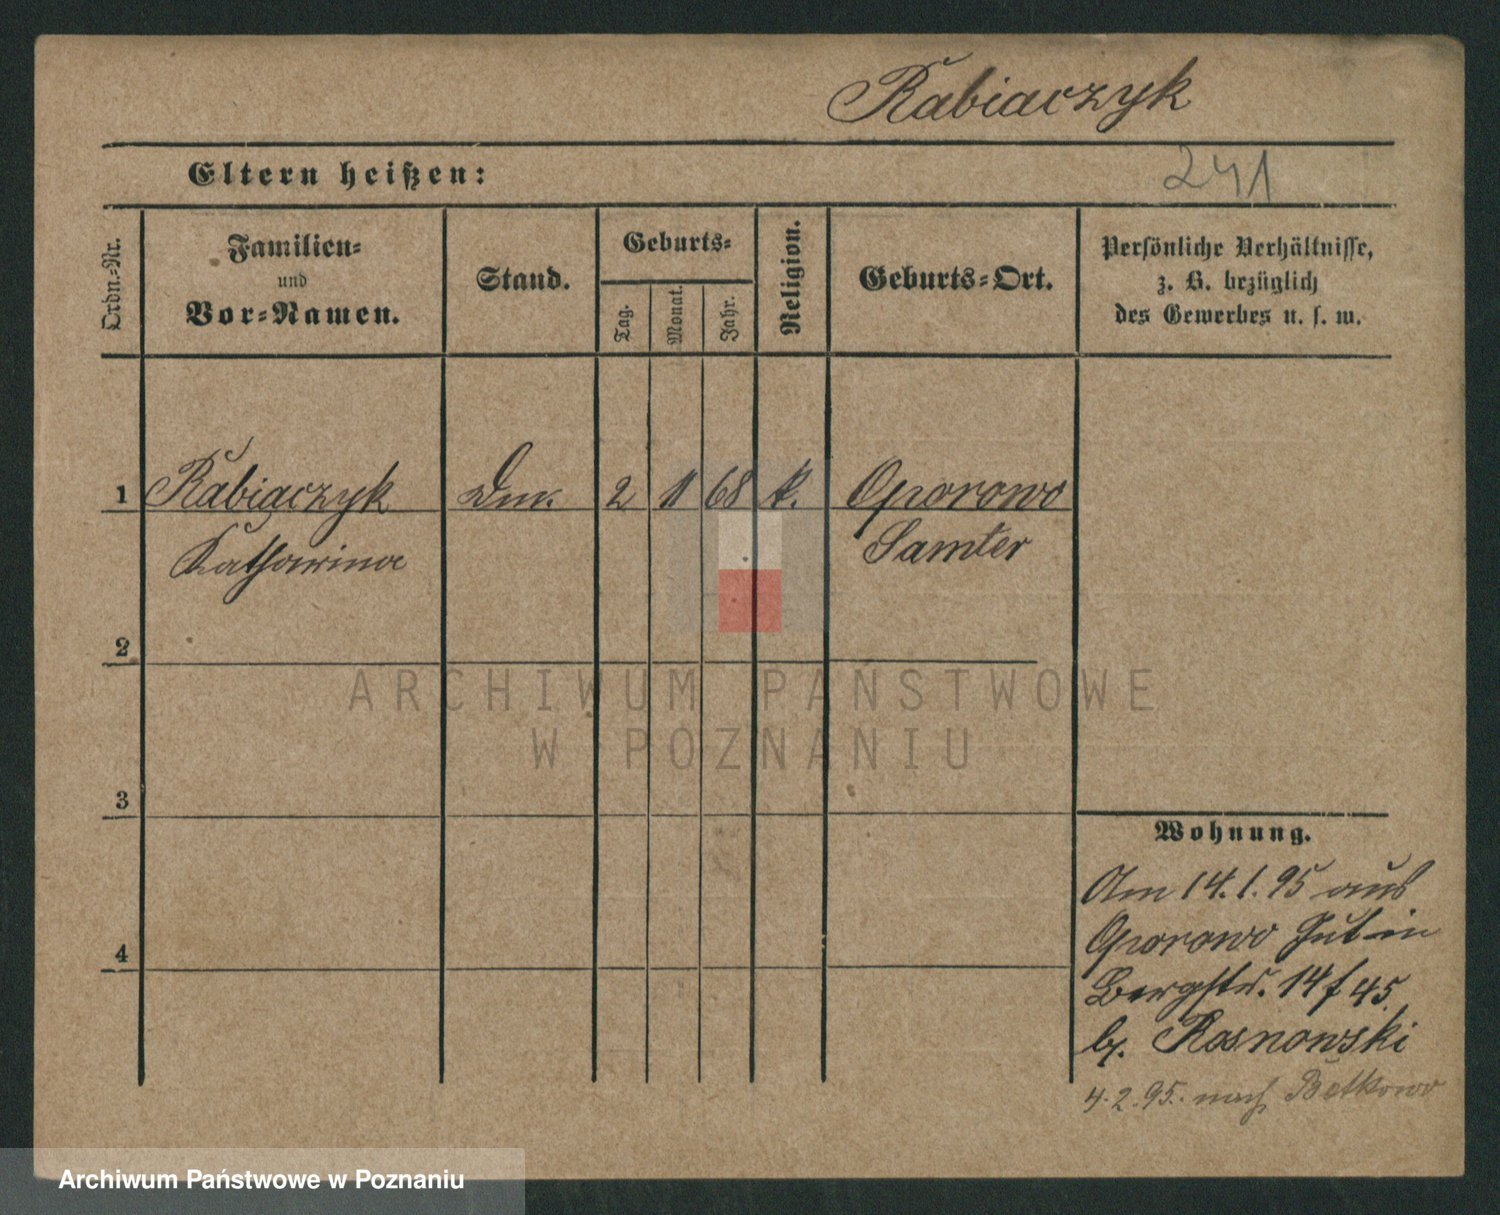 Rabiaczyk
Eltern heißen:
241
Ordn.-Nr.
Familien-
und
Vor-Namen.
Stand.
Geburts-
Tag.
Monat.
Jahr.
Religion.
Geburts-Ort.
Persönliche Verhältnisse,
z. B. bezüglich
des Gewerbes u. s. w.
1 Rabiaczyk 2 11 68 k. Oporowo
Katharina Samter
2
ARCHIWUM PAŃSTWOWE
W POZNANIU
3
Wohnung.
Am 14.1.95 aus
Oporowo Gut in
4
Bergstr. 14 f 45
b. Rosnowski
4.2.95. nach Betkowo
Archiwum Państwowe w Poznaniu